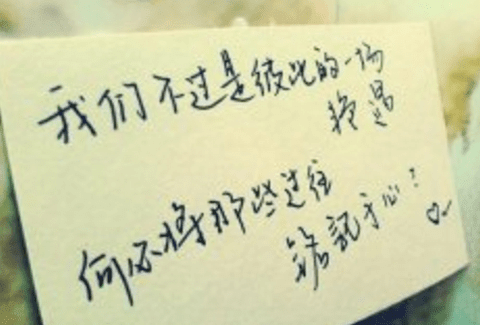 我们不过是彼此的一场
艳遇
何必将那些过往
铭記于心!